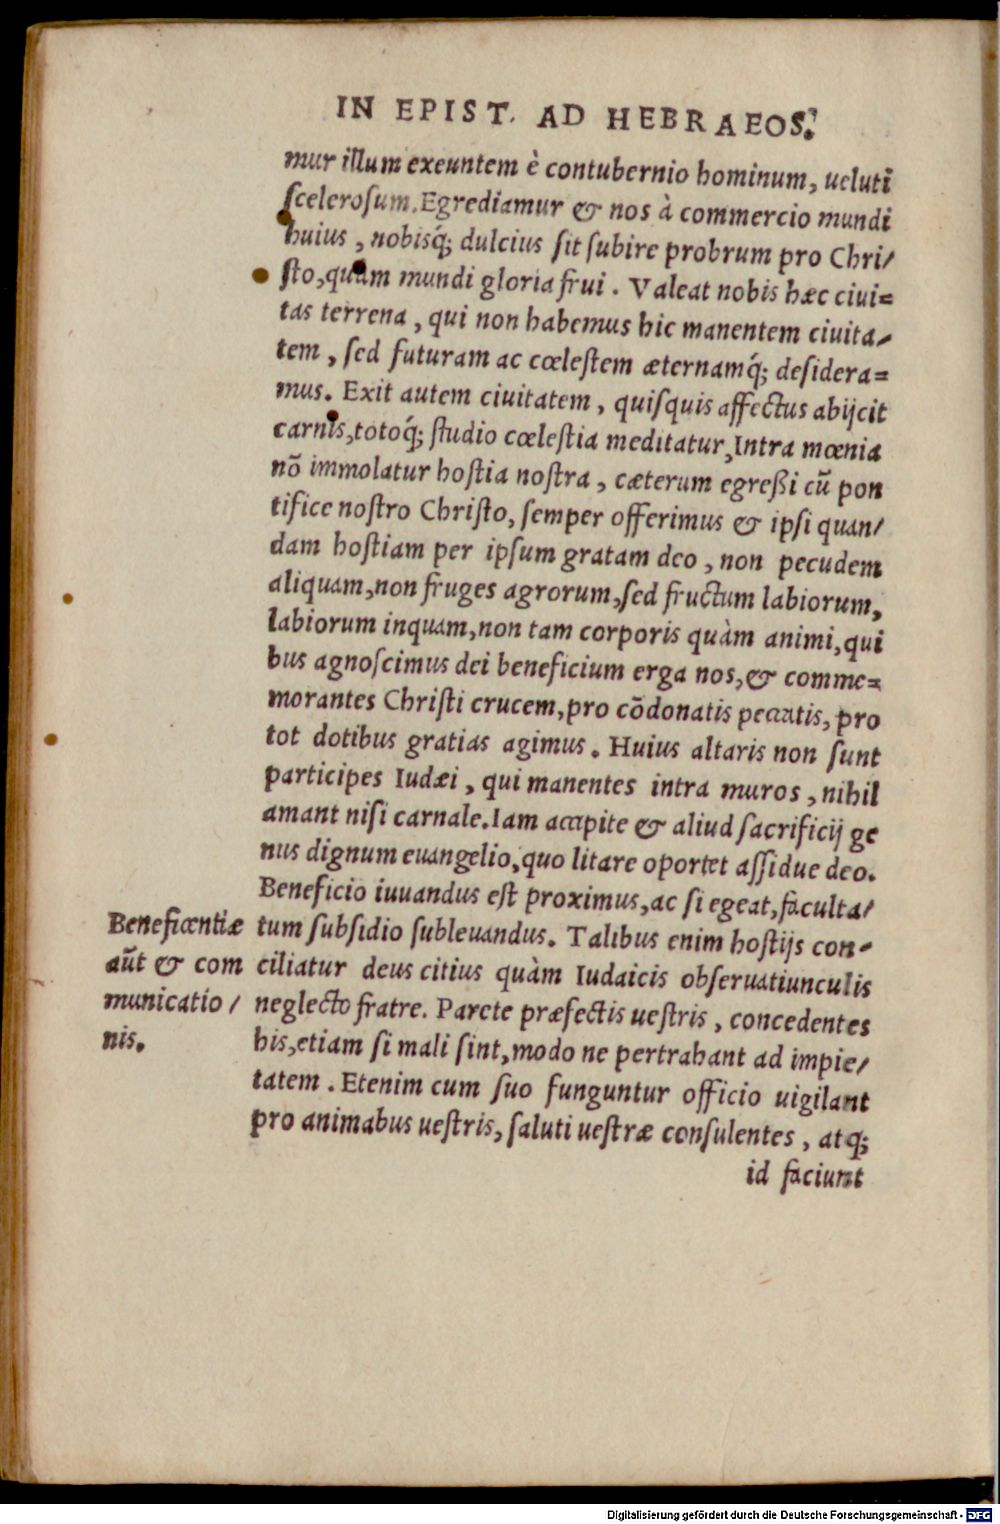 IN EPIST. AD HEBRAEOS.
mur illum exeuntem è contubernio hominum, ueluti
ſceleroſum. Egrediamur & nos à commercio mundi
huius, nobisq́; dulcius ſit ſubire probrum pro Chri/
ſto, quàm mundi gloria frui. Valeat nobis hæc ciui=
tas terrena, qui non habemus hic manentem ciuita/
tem, ſed futuram ac cœleſtem æternamq́; deſidera=
mus. Exit autem ciuitatem, quiſquis affectus abijcit
carnis, totoq́; ſtudio cœleſtia meditatur, Intra mœnia
nō immolatur hoſtia noſtra, cæterum egreßi cū pon
tifice noſtro Chriſto, ſemper offerimus & ipſi quan/
dam hoſtiam per ipſum gratam deo, non pecudem
aliquam, non fruges agrorum, ſed fructum labiorum,
labiorum inquam, non tam corporis quàm animi, qui
bus agnoſcimus dei beneficium erga nos, & comme=
morantes Chriſti crucem, pro cōdonatis peccatis, pro
tot dotibus gratias agimus. Huius altaris non ſunt
participes Iudæi, qui manentes intra muros, nihil
amant niſi carnale. Iam accipite & aliud ſacrificij ge
nus dignum euangelio, quo litare oportet aſſidue deo.
Beneficio iuuandus eſt proximus, ac ſi egeat, faculta/
tum ſubſidio ſubleuandus. Talibus enim hoſtijs con=
ciliatur deus citius quàm Iudaicis obſeruatiunculis
neglecto fratre. Parete præfectis ueſtris, concedentes
his, etiam ſi mali ſint, modo ne pertrahant ad impie/
tatem. Etenim cum ſuo funguntur officio uigilant
pro animabus ueſtris, ſaluti ueſtræ conſulentes, atq;
id faciunt
Beneficentiæ
aūt & com
municatio/
nis.
Digitalisierung gefördert durch die Deutsche Forschungsgemeinschaft - DFG